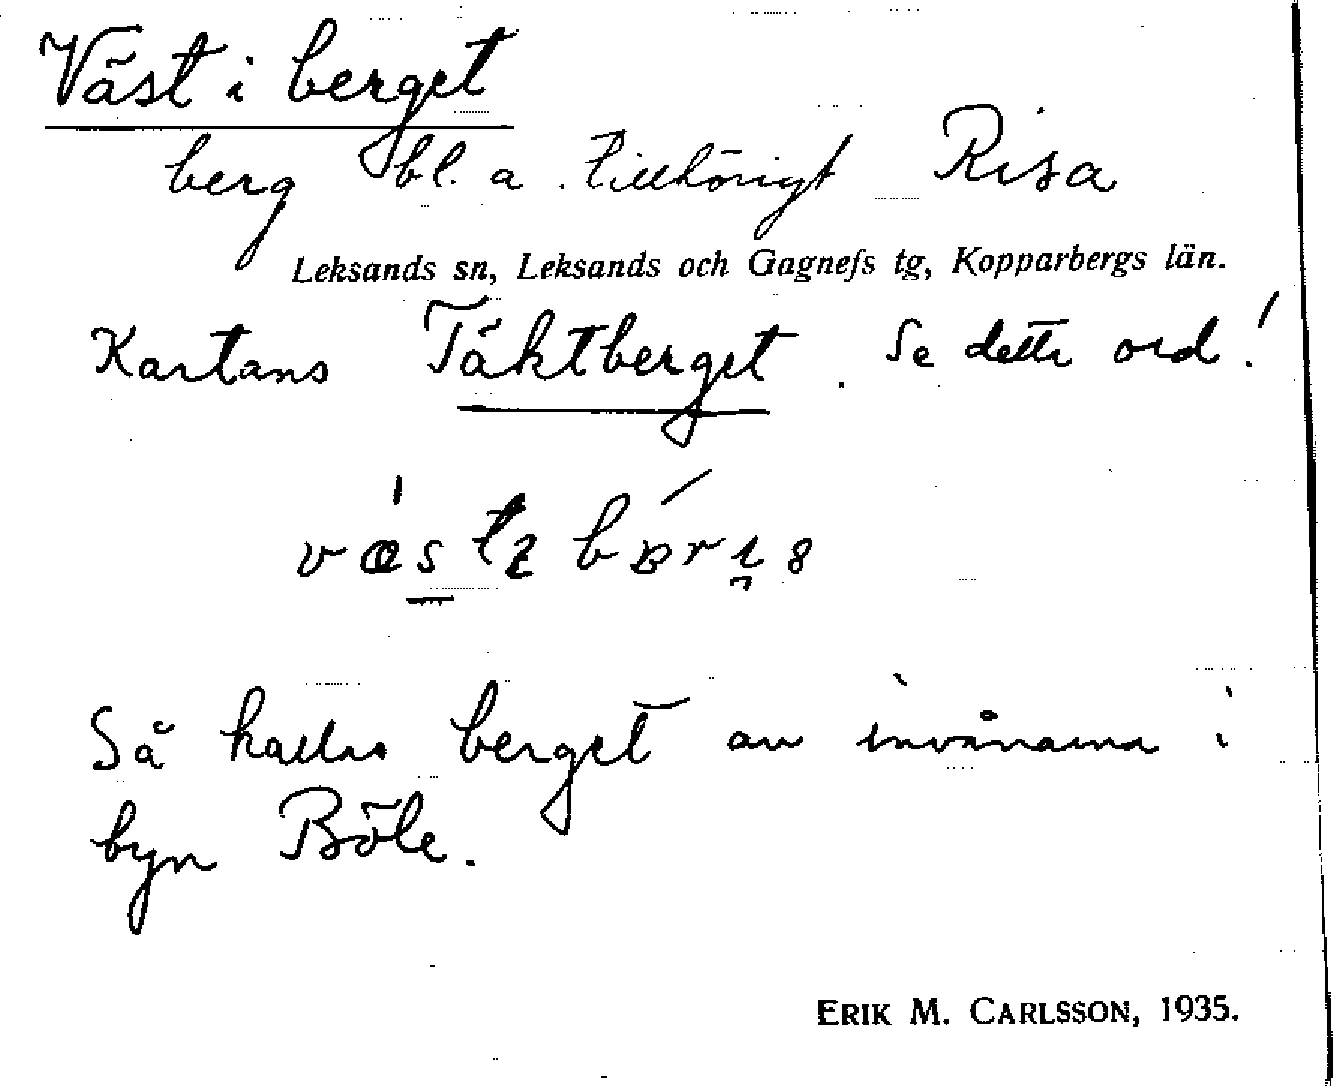 Väst i berget
berg bl. a. tillhörigt Risa
Leksands sn, Leksands och Gagnefs tg, Kopparbergs län.
Kartans Täktberget. Se detta ord!
Så kallas berget av invånarna i
byn Böle.
ERIK M. CARLSSON, 1935.